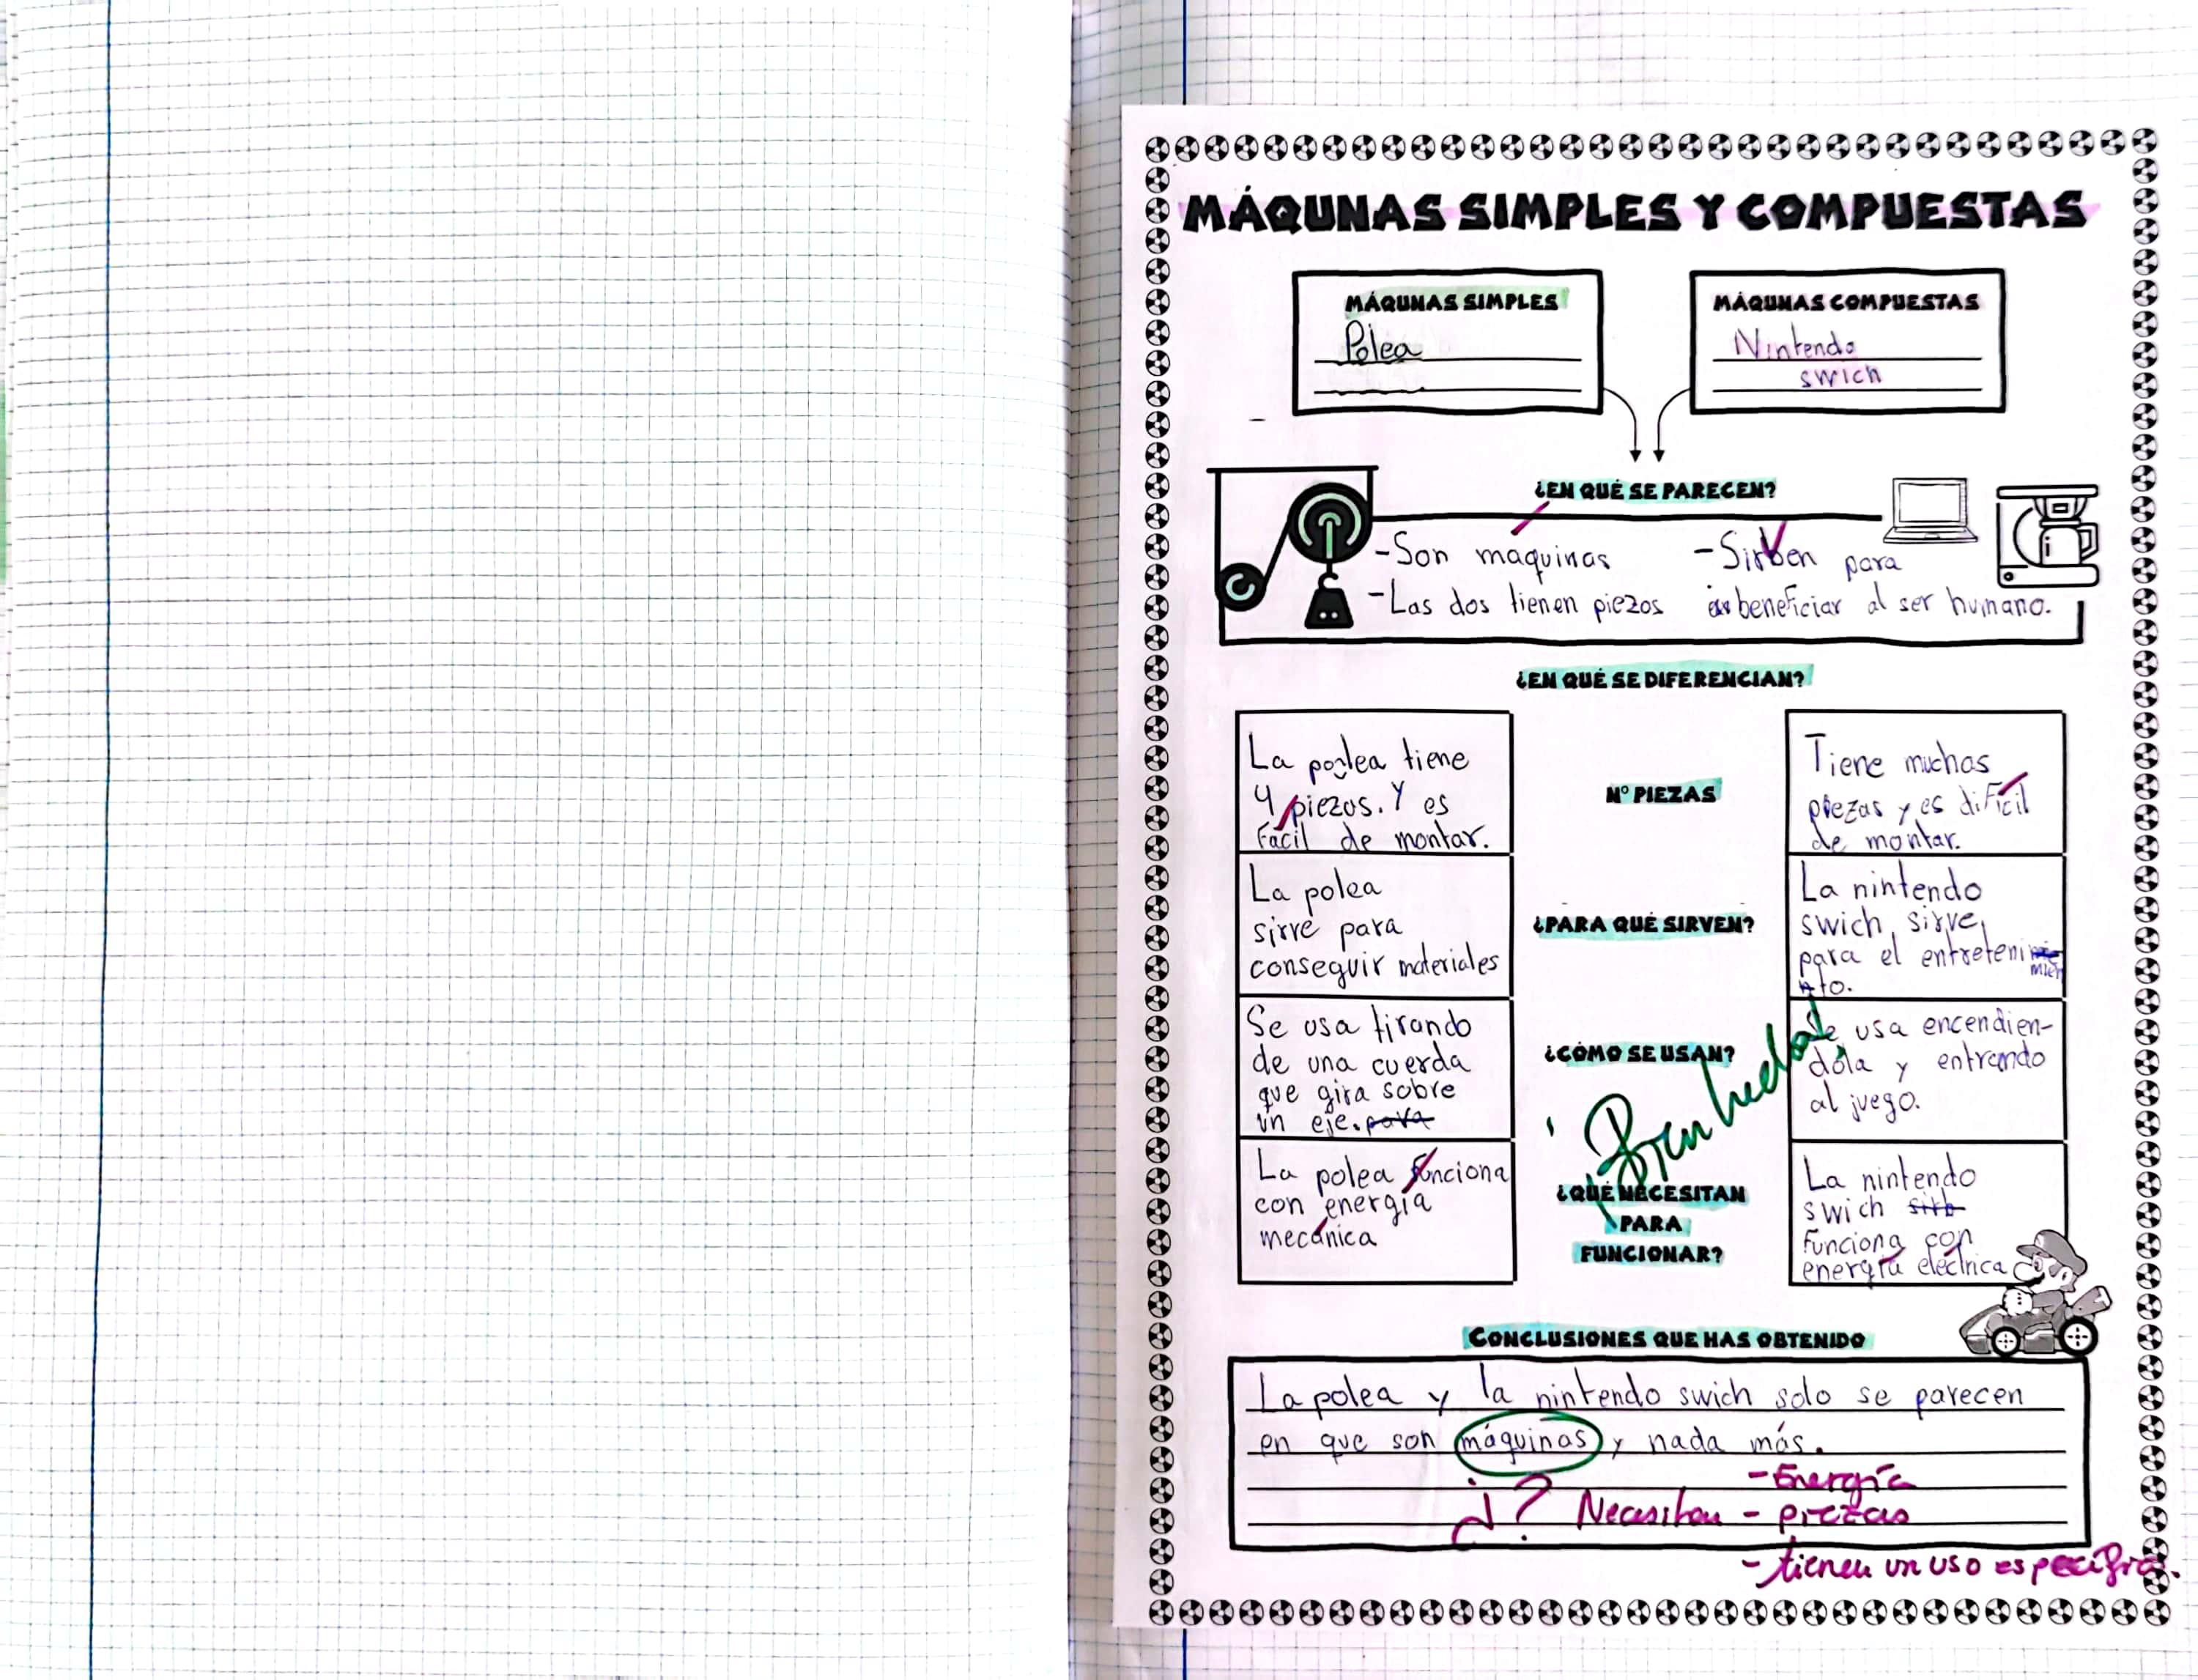 MÁQUNAS SIMPLES Y COMPUESTAS
MÁQUNAS SIMPLES
Polea
MÁQUNAS COMPUESTAS
Nintendo
swich
¿EN QUÉ SE PARECEN?
-Son maquinas
-Las dos tienen piezas
-Sirven para
beneficiar al ser humano.
¿EN QUÉ SE DIFERENCIAN?
La polea tiene
4 piezas. Y es
fácil de montar.
Nº PIEZAS
Tiene muchas
piezas y es difícil
de montar.
La polea
sirve para
conseguir materiales
¿PARA QUÉ SIRVEN?
La nintendo
swich, sirve,
para el entreteni
mien
to.
Se usa tirando
de una cuerda
que gira sobre
un eje. para
¿CÓMO SE USAN?
Se usa encendien-
dola y entrando
al juego.
Bien hecho
La polea funciona
con energía
mecánica
¿QUÉ NECESITAN
PARA
FUNCIONAR?
La nintendo
swich sirb
funciona con
energía eléctrica
CONCLUSIONES QUE HAS OBTENIDO
La polea y la nintendo swich solo se parecen
en que son máquinas y nada más.
¿? Necesitan - Energía
- piezas
- tienen un uso específico.